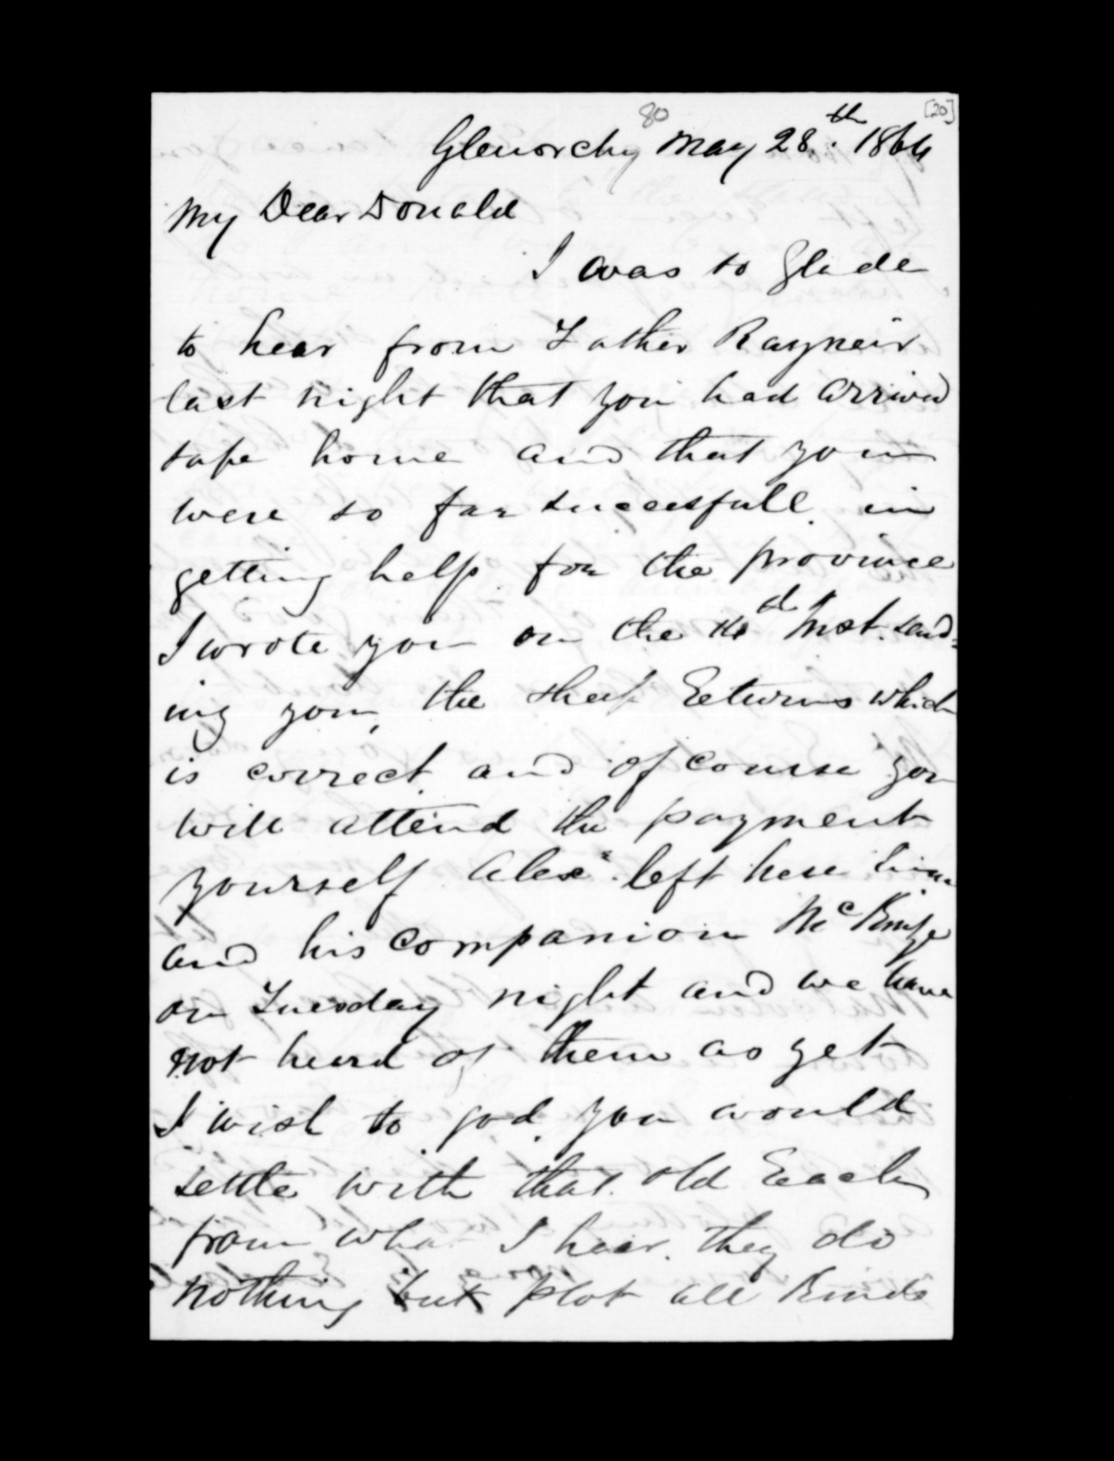 80
[20]
Glenorchy May 28th. 1864
My Dear Donald
I was so Glade
to hear from Father Rayneir
last night that you had arrived
safe home and that you
were so far successfull in
getting help for the province
I wrote you on the Inst. send-
ing you, the sheep Returns which
is correct and of course you
will attend the payment
yourself Alexr. left here him
and his companion
on Tuesday night and we have
not heard of them as yet
I wish to god you would
settle with that old
from what I hear they do
nothing but plot all kinds